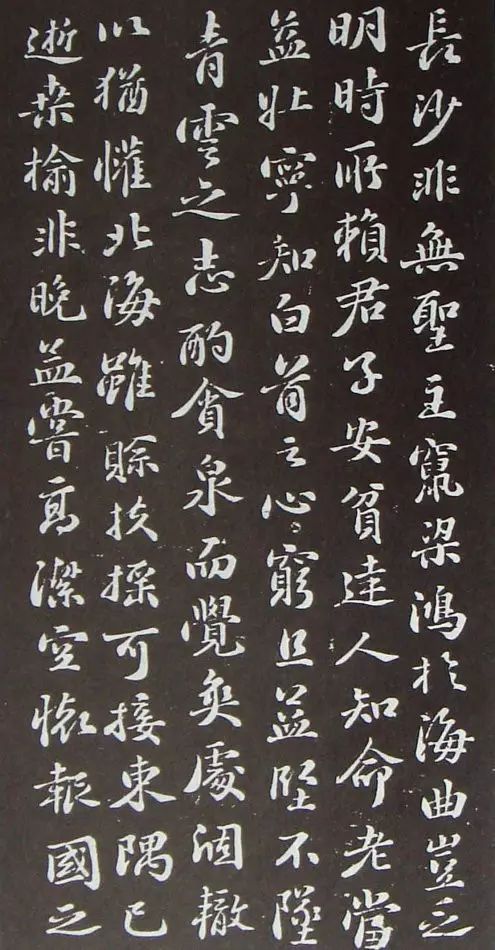 長沙非無聖主竄梁鴻於海曲豈乏
明時所賴君子安貧達人知命老當
益壯寧知白首之心窮且益堅不墜
青雲之志酌貪泉而覺爽處涸轍
以猶懽北海雖賒扶搖可接東隅已
逝桑榆非晚孟嘗高潔空懷報國之